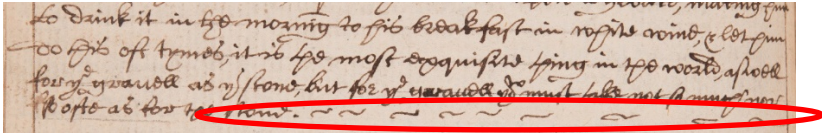 to drink it in the morning to his breakfast in white wine, & let him
doo his oft tymes, it is the most exquisite thing in the world, aswell
for yͤ gravell as yͤ stone, but for yͤ gravell yoͧ must take not so much nor
so ofte as for the stone. ~ ~ ~ ~ ~ ~ ~ ~